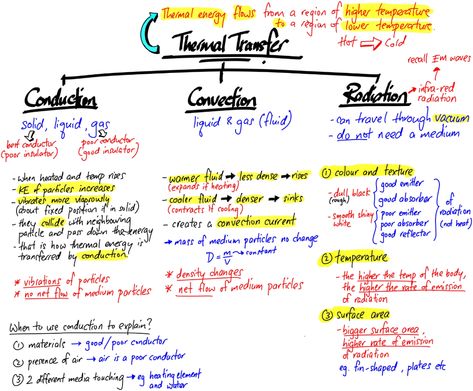 Thermal energy flows from a region of higher temperature
to a region of lower temperature.
Hot → Cold
Thermal Transfer
recall Em waves
Conduction
solid, liquid, gas
best conductor
(poor insulator)
poor conductor
(good insulator)
- when heated and temp rises
- KE of particles increases
- vibrates more vigorously
(about fixed position if in solid)
- they collide with neighbouring
particle and pass down the energy
- that is how thermal energy is
transferred by conduction
* vibrations of particles
* no net flow of medium particles
When to use conduction to explain?
① materials → good/poor conductor
② presence of air → air is a poor conductor
③ 2 different media touching → eg heating element
and water
Convection
liquid & gas (fluid)
- warmer fluid → less dense → rises
(expands if heating)
- cooler fluid → denser → sinks
(contracts if cooling)
- creates a convection current
→ mass of medium particles no change
D = m/V → constant
* density changes
* net flow of medium particles
Radiation
infra-red
radiation
- can travel through vacuum
- do not need a medium
① colour and texture
- dull, black
(rough)
good emitter
good absorber
- smooth shiny
white
poor emitter
poor absorber
good reflector
of
radiation
(not heat)
② temperature
- the higher the temp of the body,
the higher the rate of emission
of radiation
③ surface area
- bigger surface area,
higher rate of emission
of radiation
eg. fin-shaped, plates etc